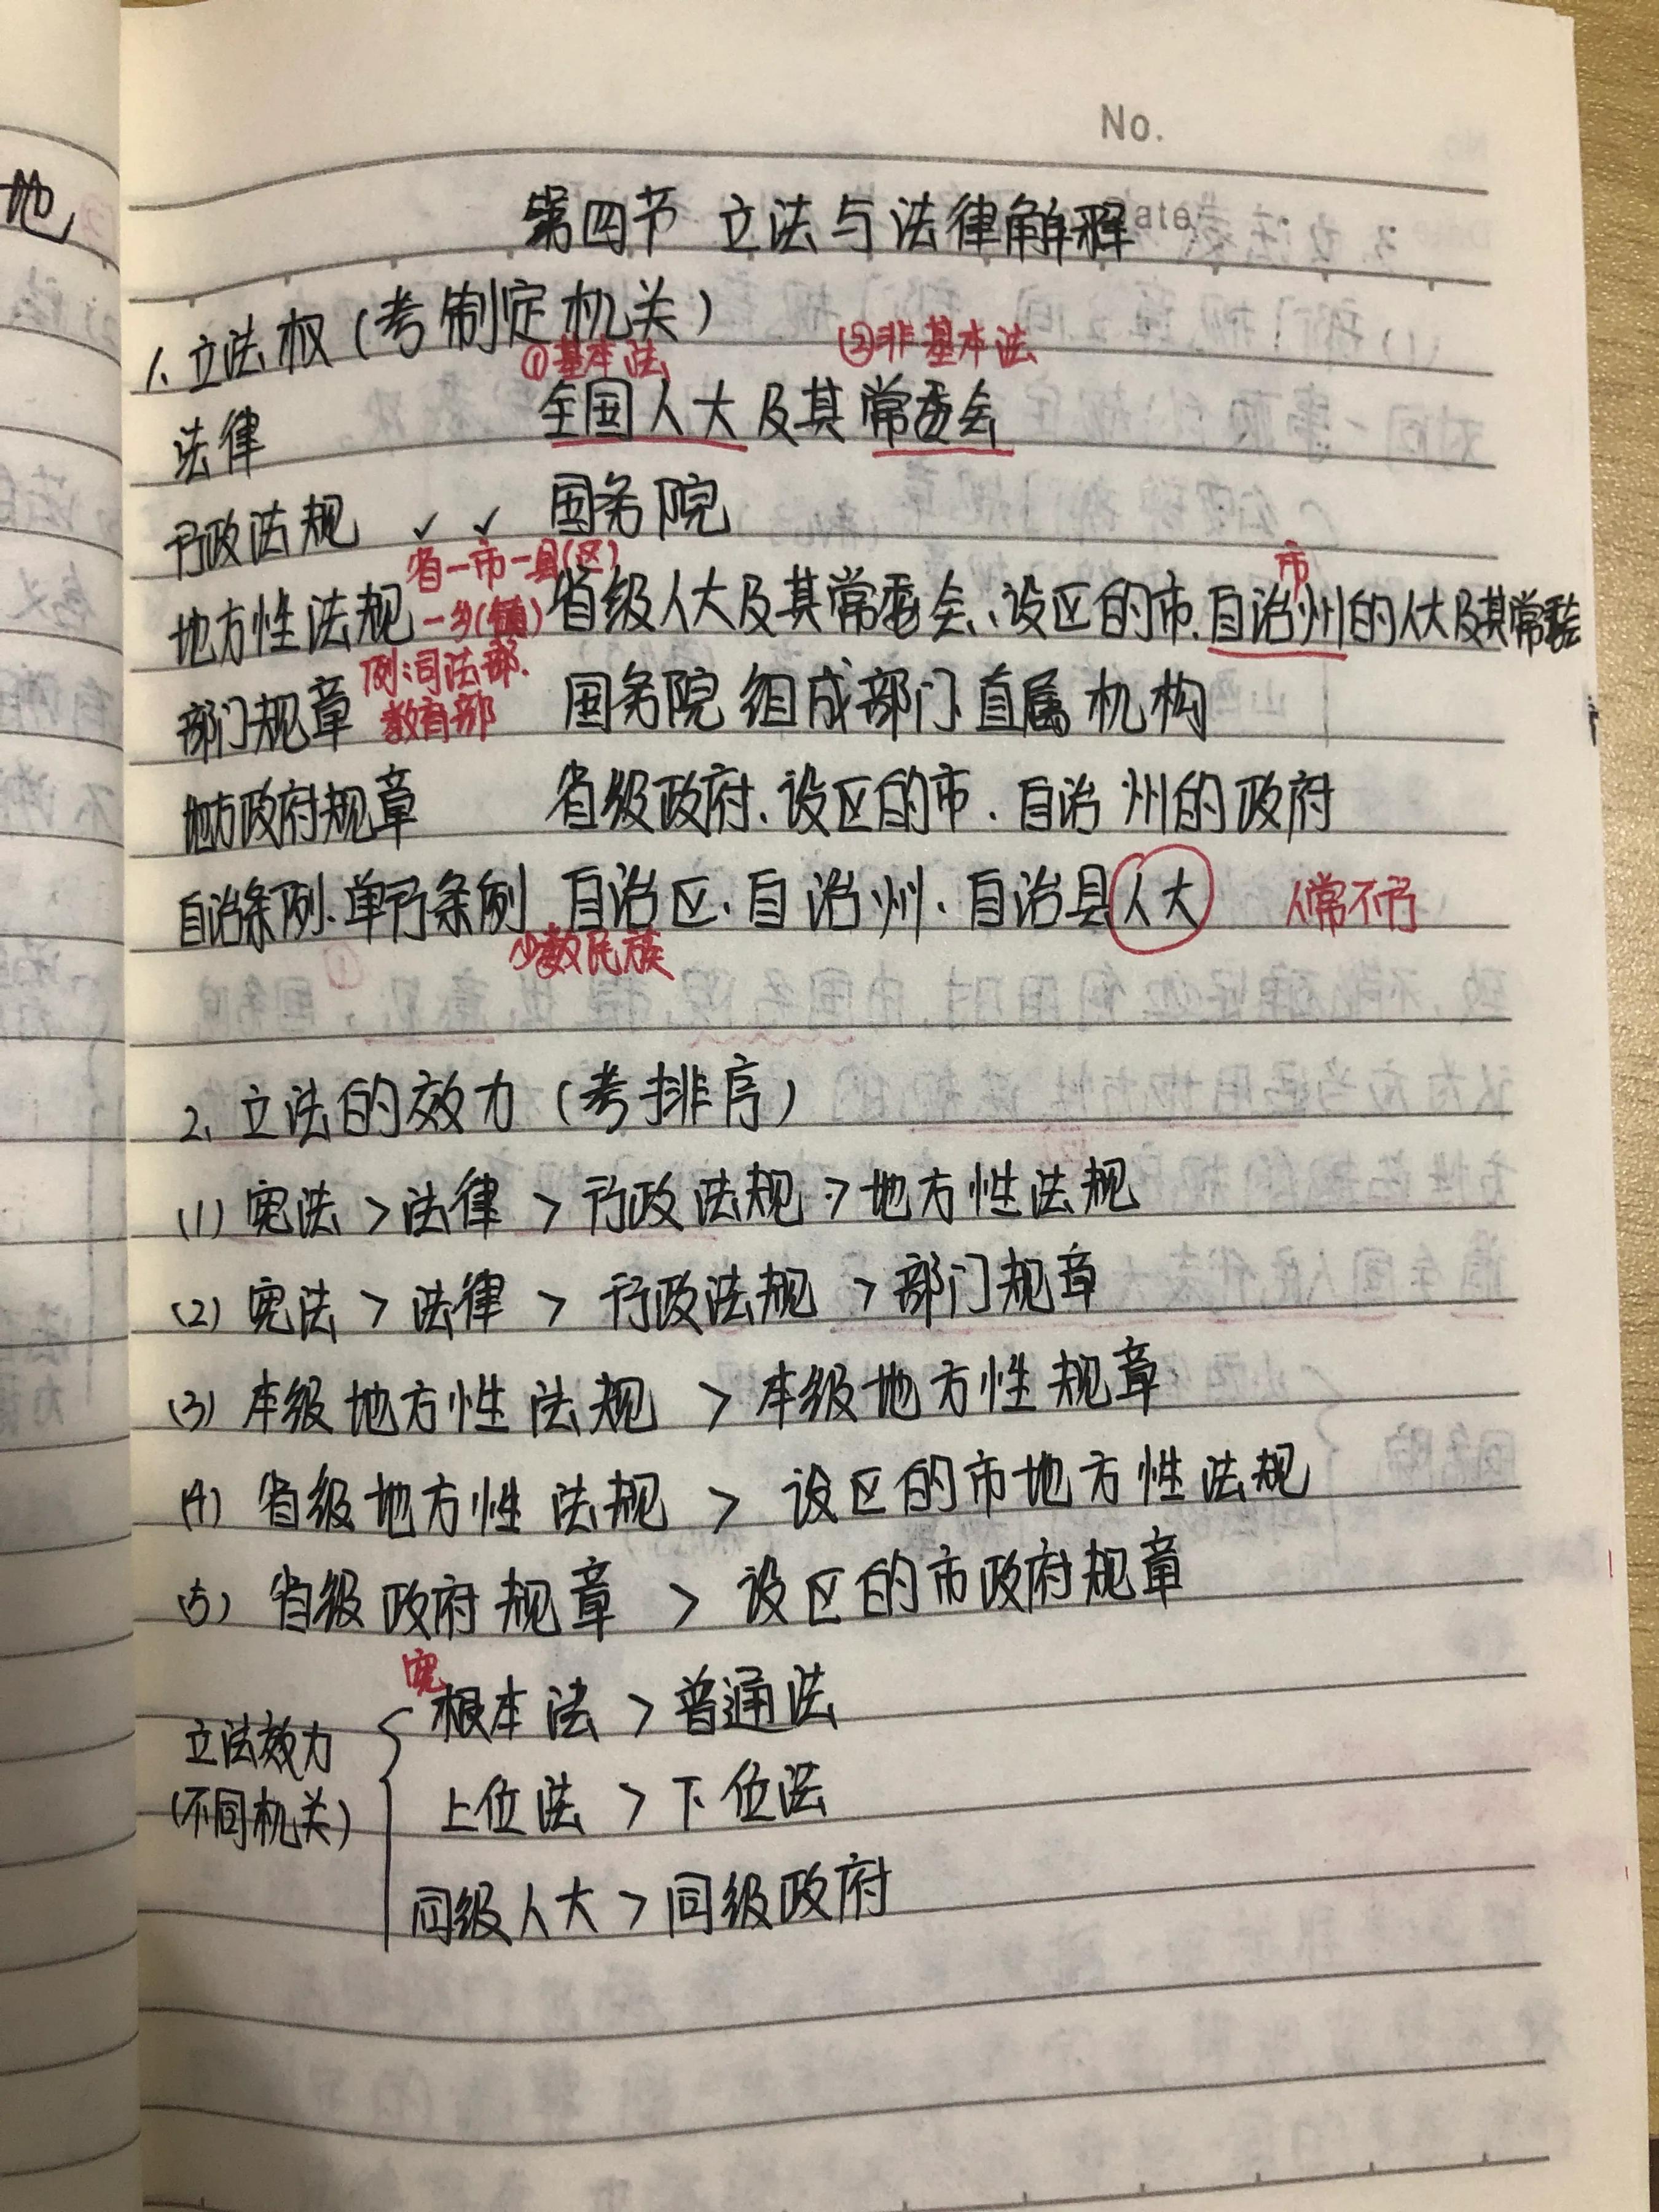 地
No.
Date
第四节 立法与法律解释
1、立法权(考制定机关)
①基本法 ②非基本法
法律 全国人大及其常委会
行政法规 ✓ ✓ 国务院
省一市一县(区) 市
地方性法规 一乡(镇) 省级人大及其常委会、设区的市、自治州的人大及其常委会
例:司法部、
部门规章 教育部 国务院组成部门、直属机构
地方政府规章 省级政府、设区的市、自治州的政府
自治条例、单行条例 自治区、自治州、自治县人大 人常不行
少数民族
2、立法的效力(考排序)
(1) 宪法>法律>行政法规>地方性法规
(2) 宪法>法律>行政法规>部门规章
(3) 本级地方性法规>本级地方性规章
(4) 省级地方性法规>设区的市地方性法规
(5) 省级政府规章>设区的市政府规章
宪
根本法>普通法
立法效力
(不同机关)
上位法>下位法
同级人大>同级政府